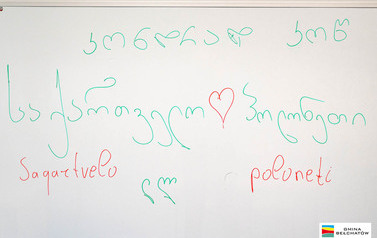 კონრად კოწ
საქართველო ♡ პოლონეთი
Saqartvelo poloneti
GMINA
BEŁCHATÓW